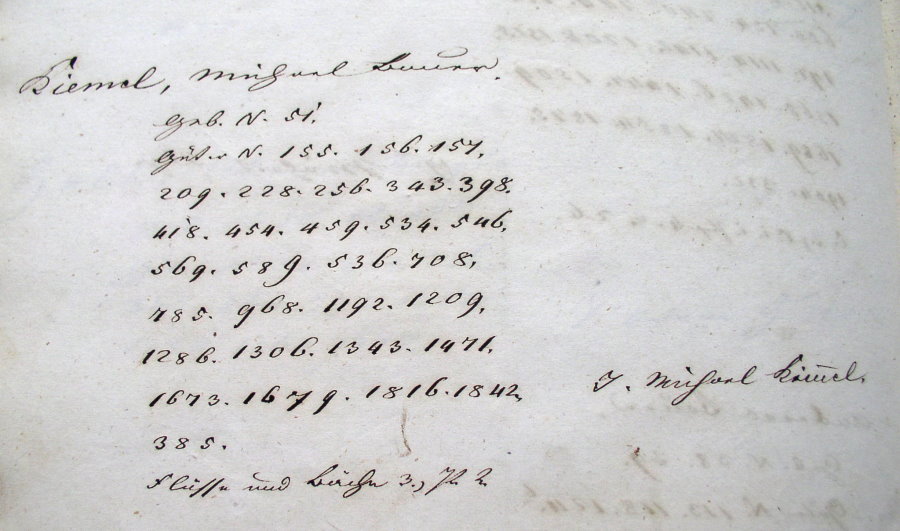 Kiemel, Michael Bauer.
Geb. N. 51.
Güter N. 155. 156. 157,
209. 228. 256. 343. 398,
418. 454. 459. 534. 546,
569. 589. 536. 708,
785. 968. 1192. 1209,
1286. 1306. 1343. 1471,
1673. 1679. 1816. 1842,
T. Michael Kimmel.
385.
Flüsse und Bäche 3.,